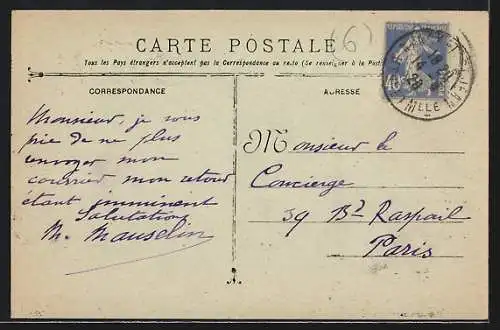 (6)
CARTE POSTALE
Tous les Pays étrangers n'acceptent pas la Correspondance au recto (Se renseigner à la Poste)
CORRESPONDANCE
ADRESSE
40c
Monsieur, je vous
prie de ne plus
envoyer mon
courrier mon retour
étant imminent
Salutations
M. Mauselin
Monsieur le
Concierge
59 Bd Raspail
Paris